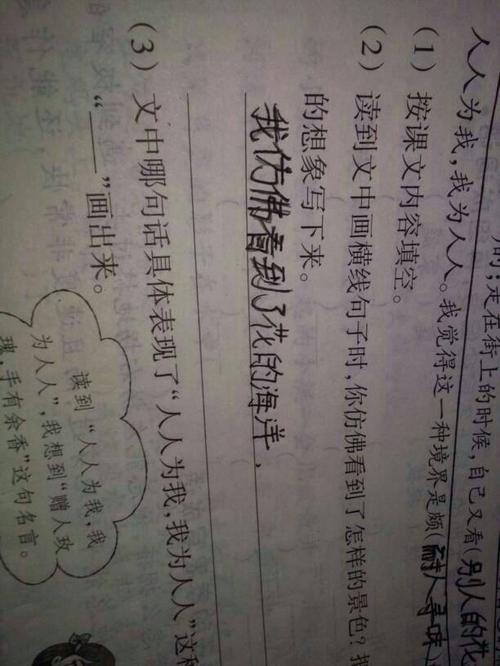 走在街上的时候,自己又看(别人的花
人人为我,我为人人。我觉得这一种境界是颇(耐人寻味
(1) 按课文内容填空。
(2) 读到文中画横线句子时,你仿佛看到了怎样的景色?
的想象写下来。
我仿佛看到了花的海洋,
(3) 文中哪句话具体表现了“人人为我,我为人人”这种
“____”画出来。
读到“人人为我,我
为人人”,我想到“赠人玫
瑰,手有余香”这句名言。